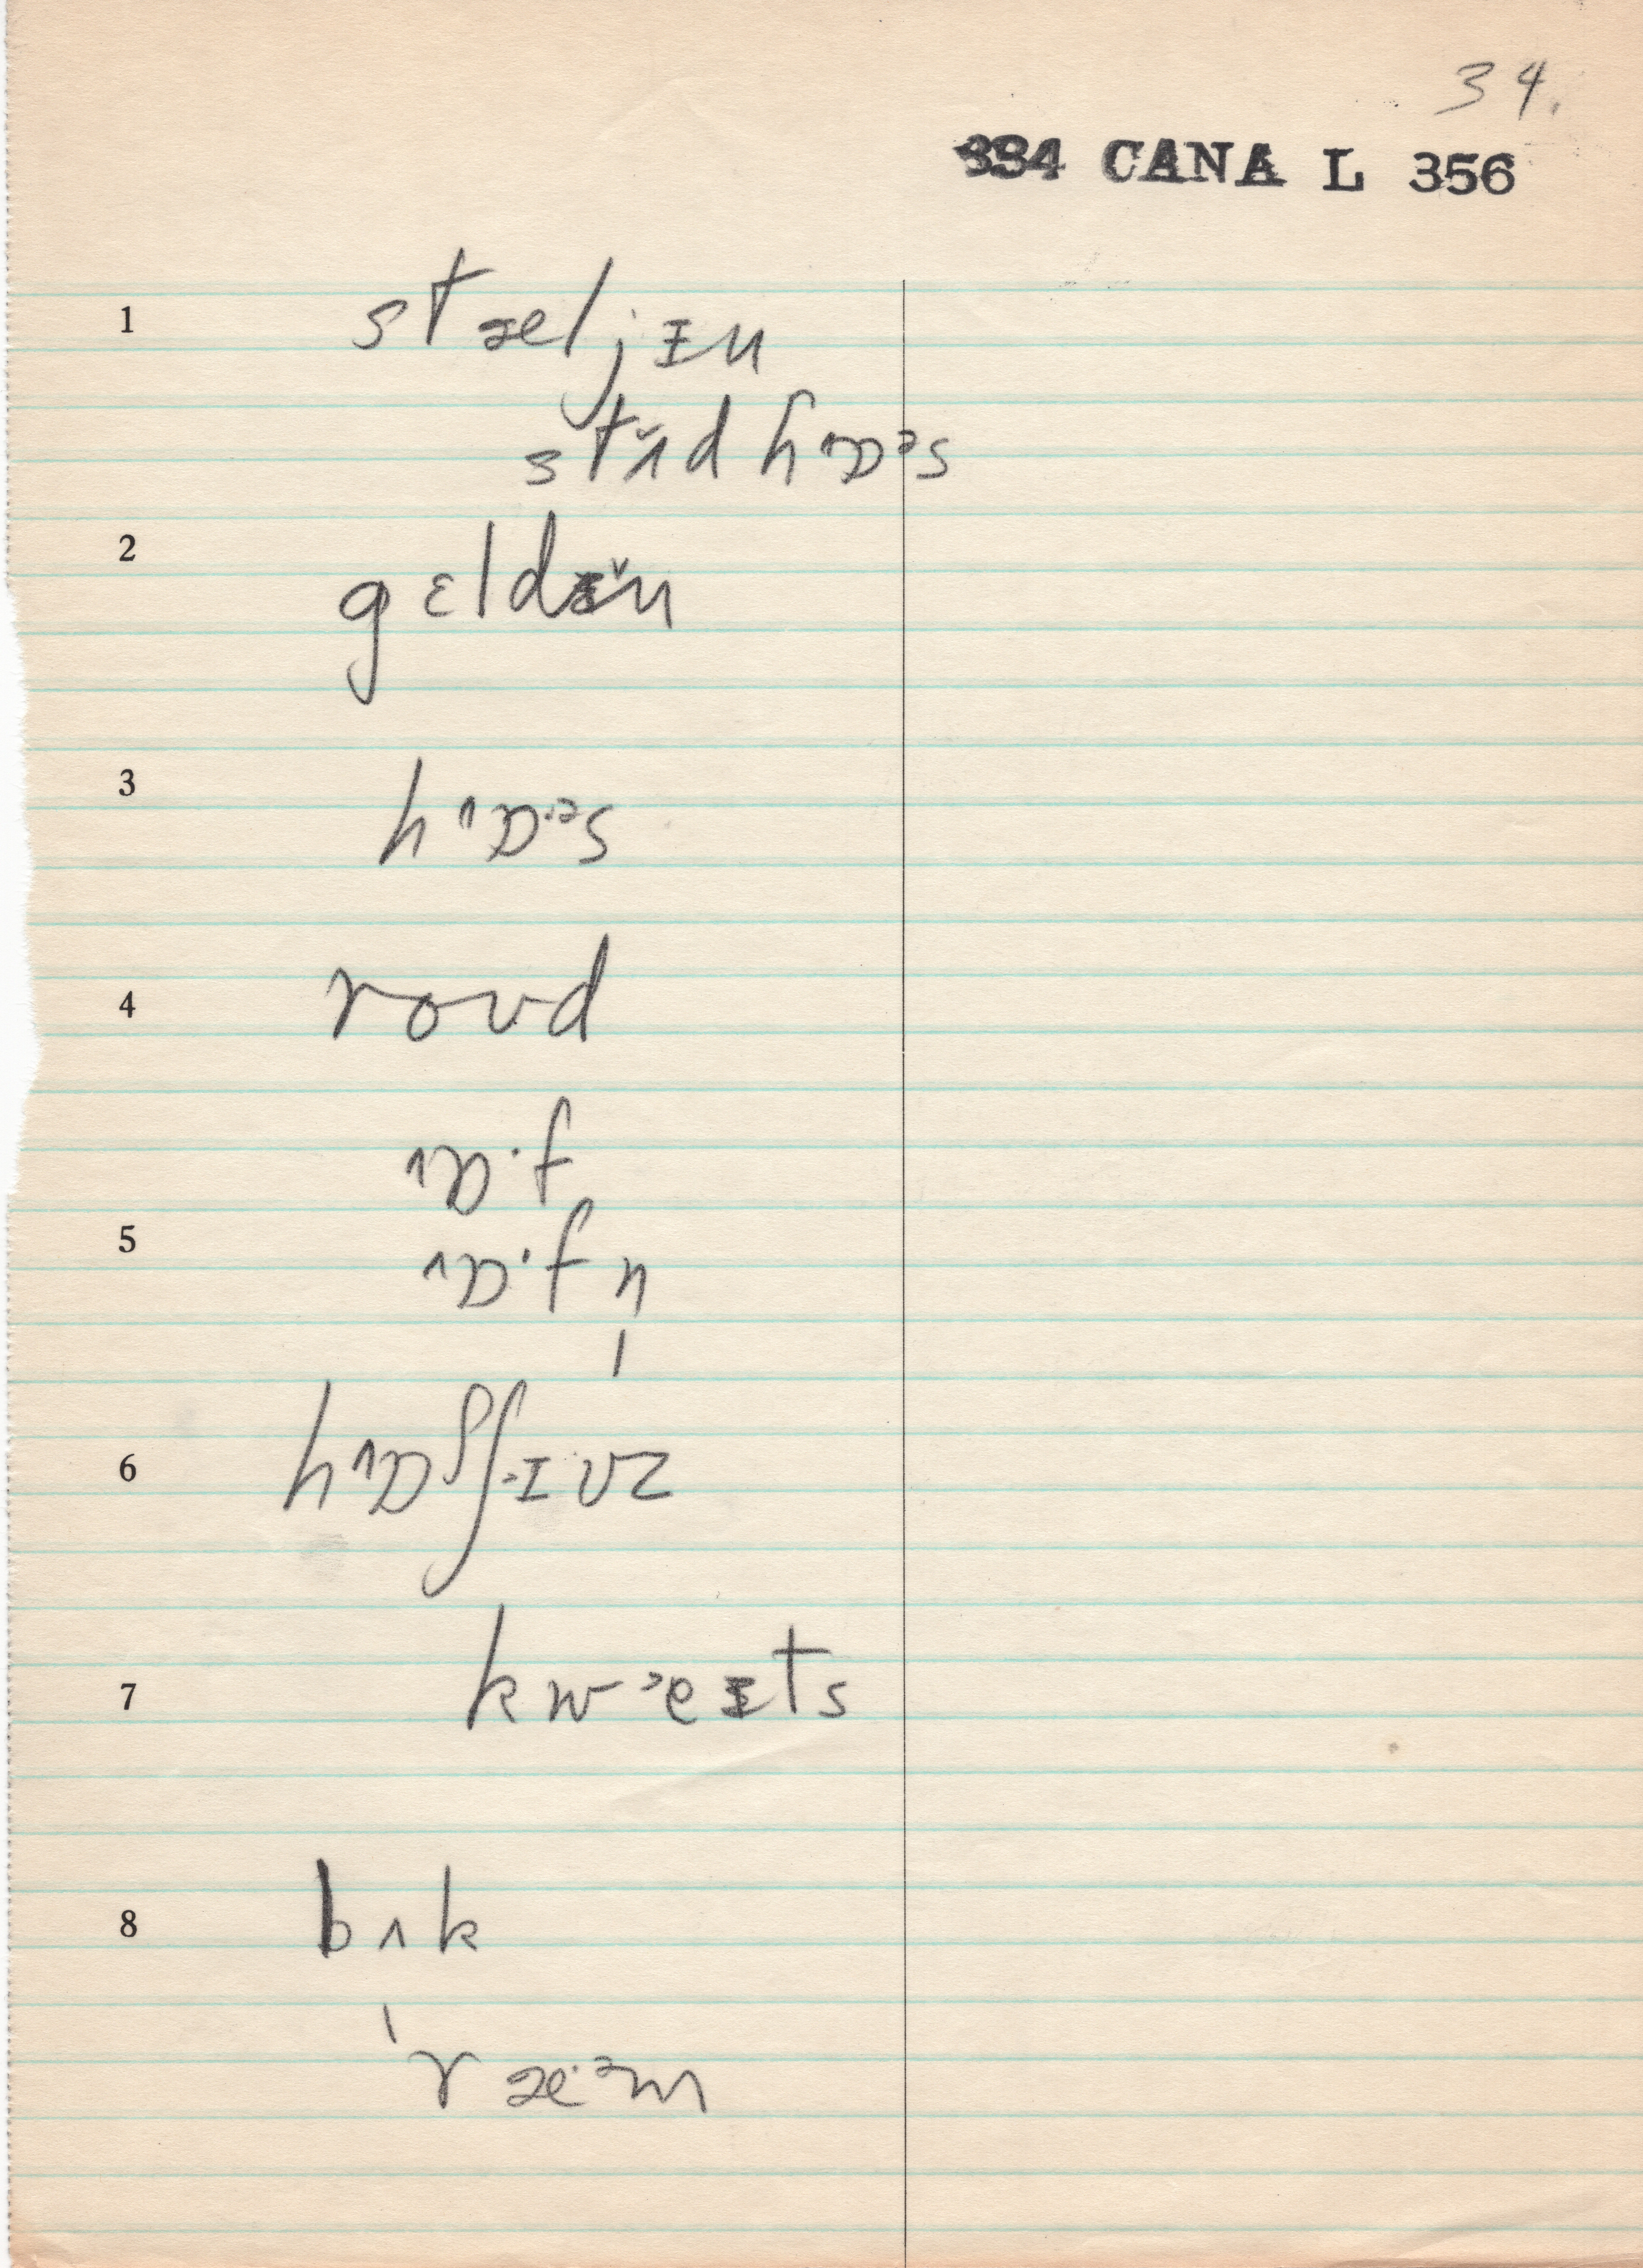 34.
334 CANA L 356
1 stæljɪn
stʌ̆d hɒəs
2 gɛldɪ̆n
3 hɒ·əs
4 roʊd
rɒ·f
5 rɒ·fn
6
7 kwɔɪts
8 bʌk
ˈræ·əm